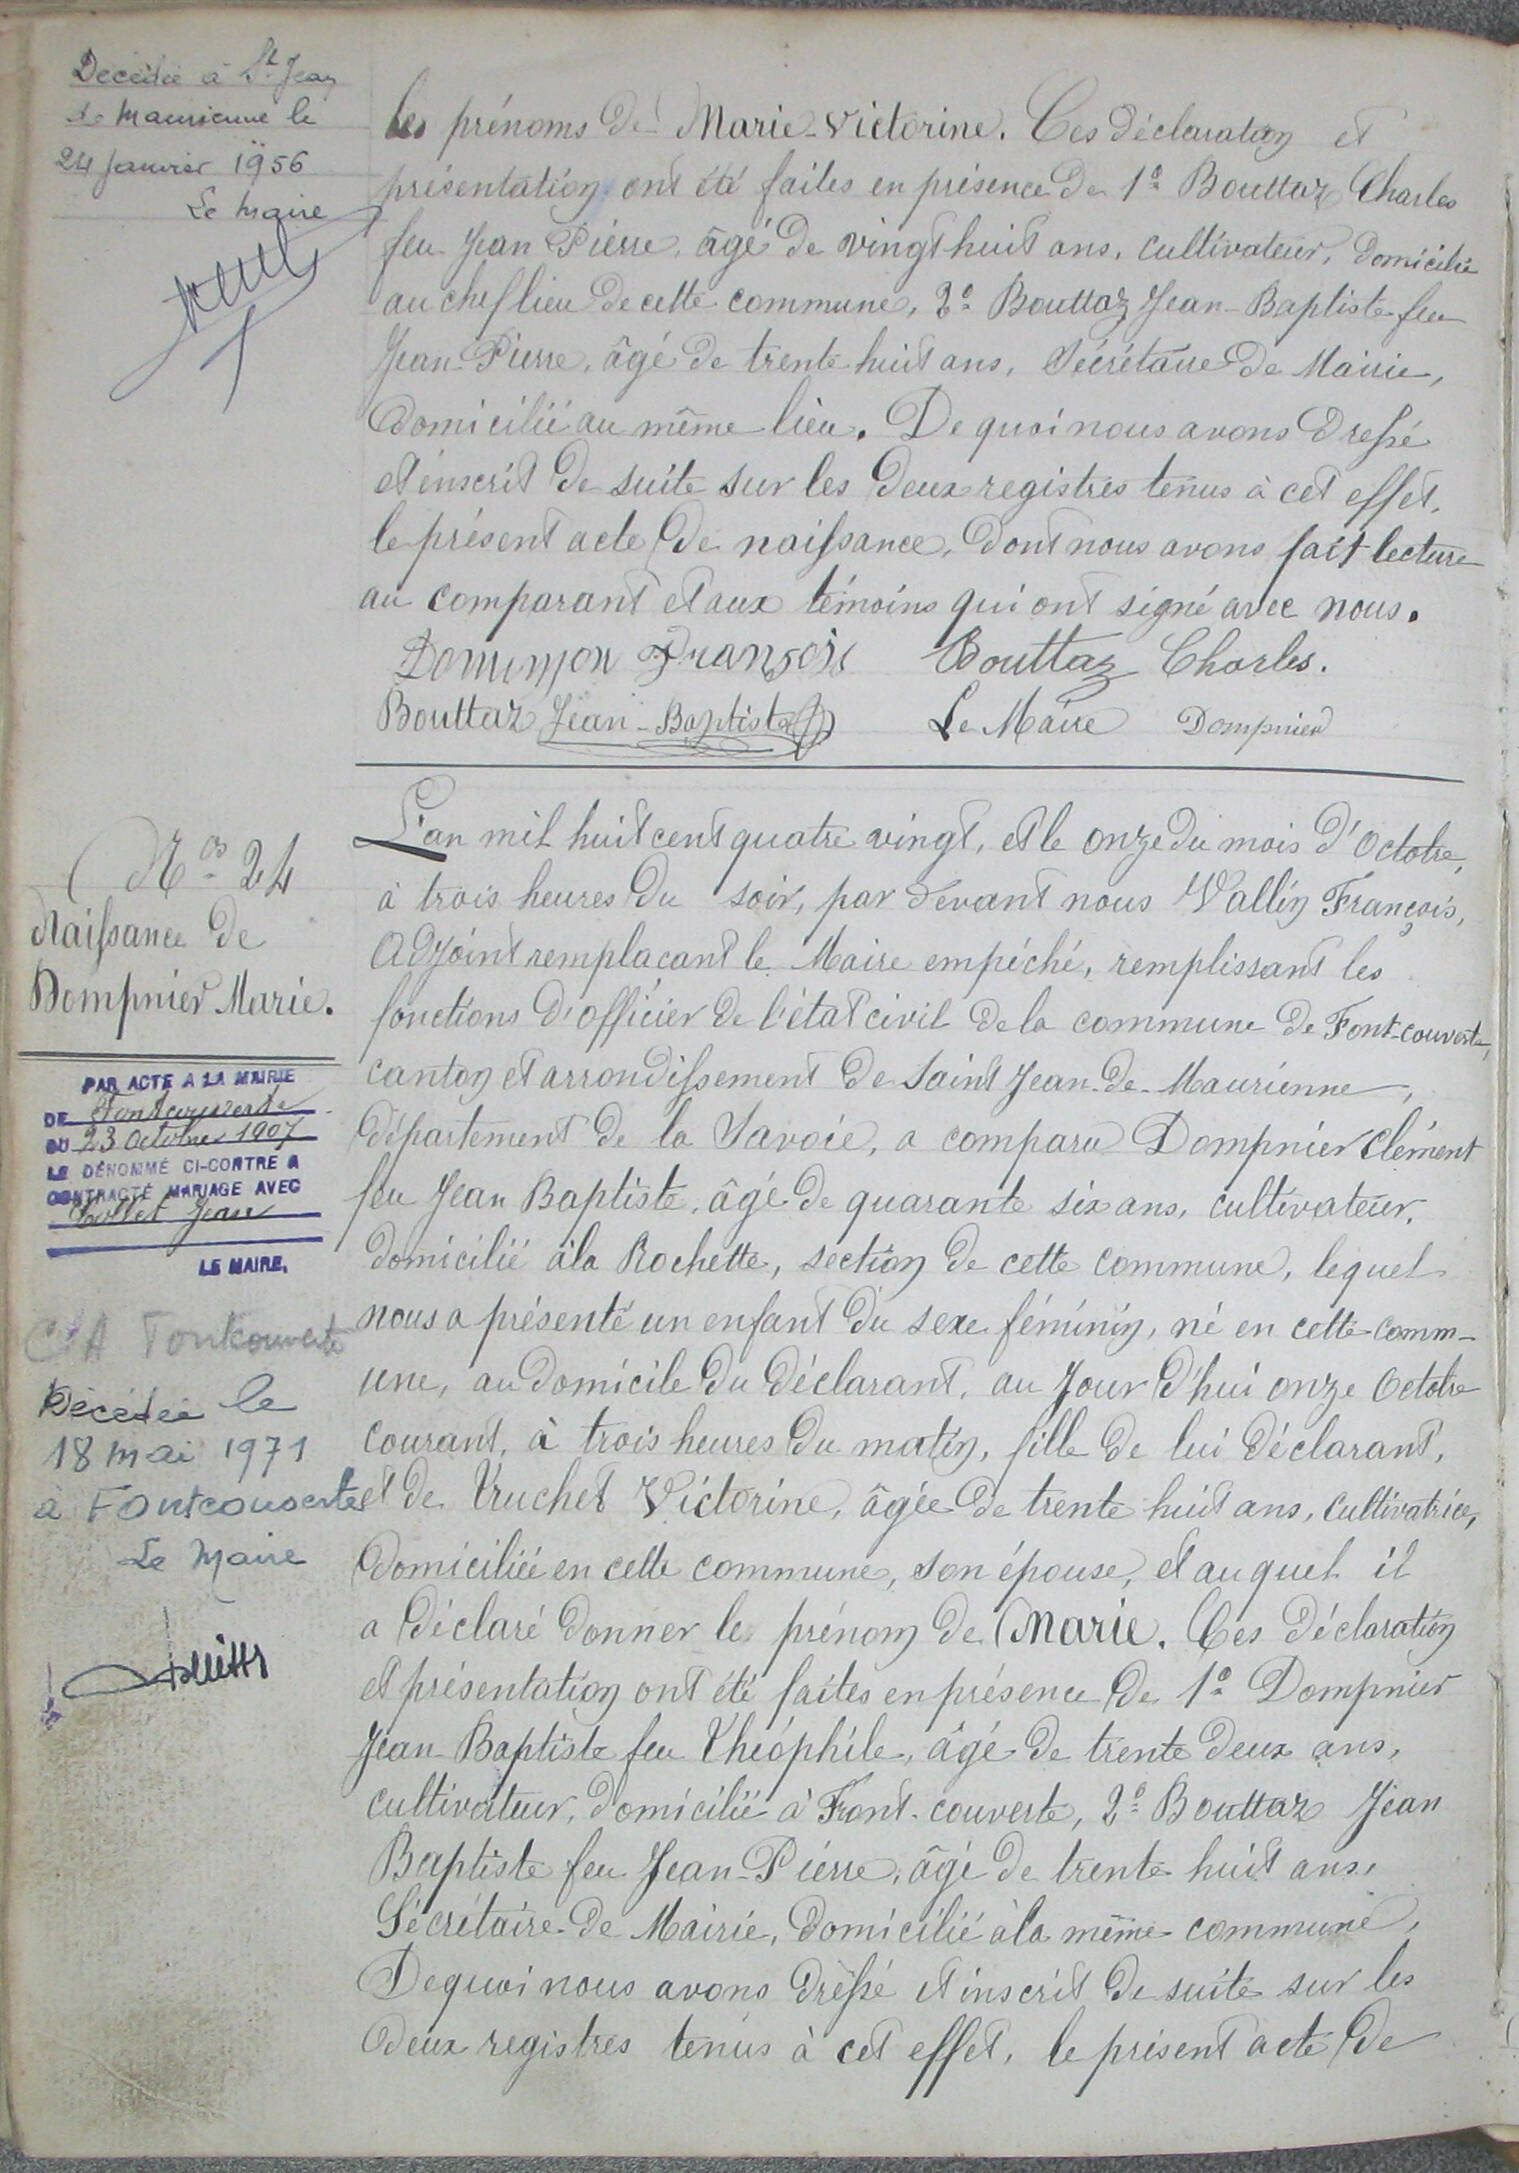 Décédée à St Jean
de Maurienne le
24 Janvier 1956
Le Maire
les prénoms de Marie-Victorine. Ces déclaration et
présentation ont été faites en présence de 1º Bouttaz Charles
feu Jean Pierre, âgé de vingt huit ans, cultivateur, domicilié
au chef lieu de cette commune, 2º Bouttaz Jean-Baptiste feu
Jean-Pierre, âgé de trente huit ans, Sécrétaire de Mairie,
domicilié au même lieu. De quoi nous avons dressé
et inscrit de suite sur les deux registres tenus à cet effet,
le présent acte de naissance, dont nous avons fait lecture
au comparant et aux témoins qui ont signé avec nous.
Dominjon François Bouttaz Charles.
Bouttaz Jean-Baptiste Le Maire Dompnier
Nos 24
Naissance de
Dompnier Marie.
PAR ACTE A LA MAIRIE
DE Fontcouverte
DU 23 Octobre 1907
LE DÉNOMMÉ CI-CONTRE A
CONTRACTÉ MARIAGE AVEC
Collet Jean
LE MAIRE,
Fontcouverte
Décédée le
18 mai 1971
à Fontcouverte
Le Maire
L'an mil huit cent quatre vingt, et le onze du mois d'Octobre,
à trois heures du soir, par devant nous Vallin François,
Adjoint remplacant le Maire empéché, remplissant les
fonctions d'officier de l'état civil de la commune de Font-couverte,
canton et arrondissement de Saint Jean-de-Maurienne,
département de la Savoie, a comparu Dompnier Clément
feu Jean Baptiste, âgé de quarante six ans, cultivateur,
domicilié à la Rochette, section de cette commune, lequel
nous a présenté un enfant du sexe féminin, né en cette comm-
une, au domicile du déclarant, au jour d'hui onze Octobre
courant, à trois heures du matin, fille de lui déclarant,
et de Truchet Victorine, âgée de trente huit ans, cultivatrice,
domiciliée en cette commune, son épouse, et auquel il
a déclaré donner le prénom de Marie. Ces déclaration
et présentation ont été faites en présence de 1º Dompnier
Jean-Baptiste feu Théophile, âgé de trente deux ans,
cultivateur, domicilié à Font-couverte, 2º Bouttaz Jean
Baptiste feu Jean-Pierre, âgé de trente huit ans,
Sécrétaire de Mairie, domicilié à la même commune,
De quoi nous avons dressé et inscrit de suite sur les
deux registres tenus à cet effet, le présent acte de